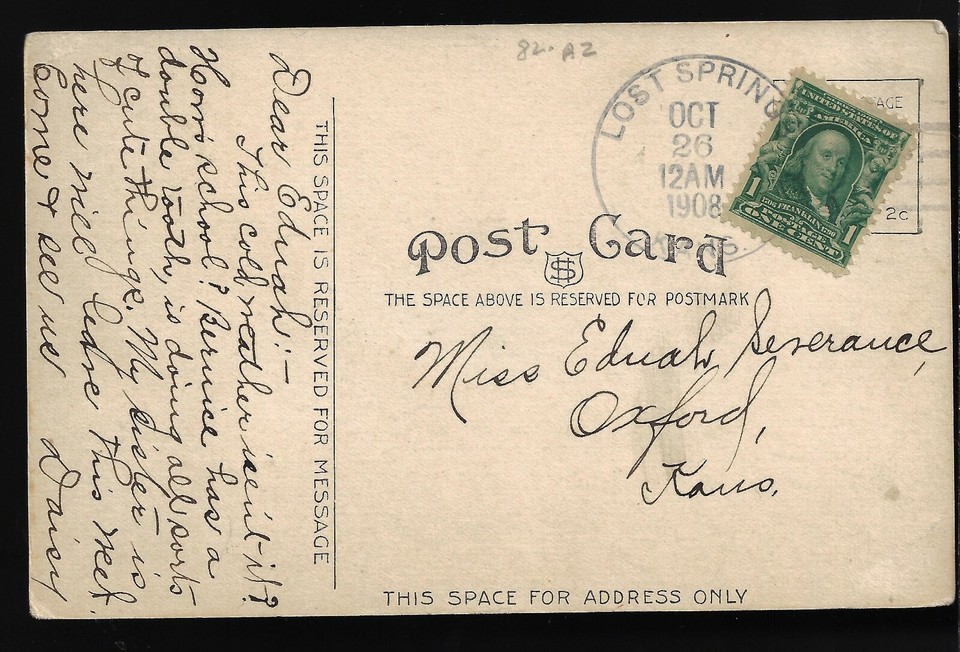 82-A2
LOST SPRING
OCT
26
12AM
1908
AGE
2c
UNITED STATES OF
AMERICA
1706 FRANKLIN 1790
POSTAGE
1 ONE CENT 1
Post Card
THE SPACE ABOVE IS RESERVED FOR POSTMARK
Miss Ednah Severance,
Oxford,
Kans.
THIS SPACE FOR ADDRESS ONLY
THIS SPACE IS RESERVED FOR MESSAGE
Dear Ednah:—
This cold weather isn't it?
How's school? Bernice has a
double tooth, is doing all sorts
of cute things. My sister is
here will leave this week.
Come & see us Daisy